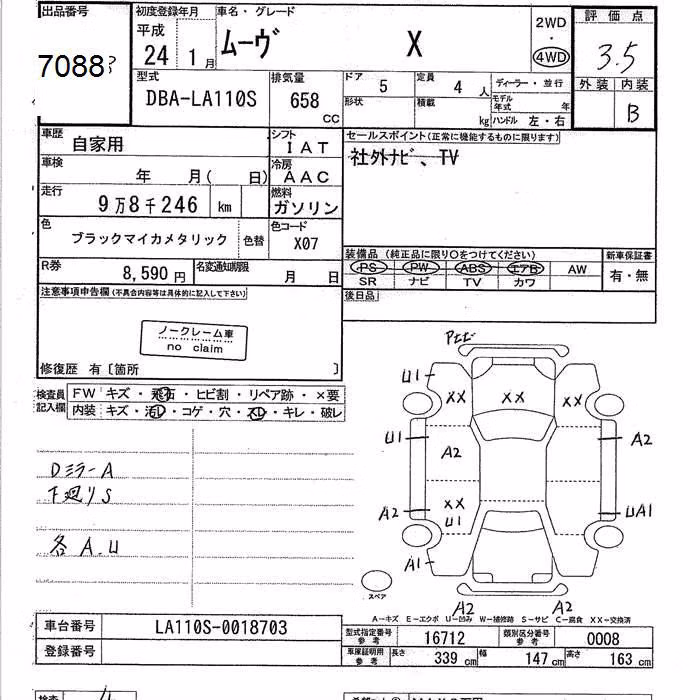 出品番号
7088
初度登録年月
平成
24 1月
車名・グレード
ムーヴ X
2WD
・
4WD
評価点
3.5
外装 内装
B
型式
DBA-LA110S
排気量
658
CC
ドア
5
定員
4 人
ディーラー・並行
形状
積載
kg
モデル年式 年
ハンドル 左・右
車歴
自家用
シフト
IAT
車検
年 月( 日)
冷房
AAC
走行
9万8千246 km
燃料
ガソリン
色
ブラックマイカメタリック 色替
色コード
X07
R券
8,590円
名変通知期限
月 日
セールスポイント(正常に機能するものに限ります)
社外ナビ、TV
装備品(純正品に限り〇をつけてください)
PS PW ABS エアB AW
SR ナビ TV カワ
新車保証書
有・無
後日品
注意事項申告欄(不具合内容等は具体的に記入して下さい)
ノークレーム車
no claim
修復歴 有〔箇所 〕
検査員記入欄
FW キズ・飛石・ヒビ割・リペア跡・×要
内装 キズ・汚レ・コゲ・穴・スレ・キレ・破レ
DミラーA
下廻りS
各 A.U
U1
XX XX XX
U1
A2
A2
A2
XX
U1
UA1
A1
スペア
A2 A2
A-キズ E-エクボ U-凹み W-補修跡 S-サビ C-腐食 XX-交換済
車台番号
LA110S-0018703
登録番号
型式指定番号 参考
16712
類別区分番号 参考
0008
車庫証明用 参考
長さ 339 cm 幅 147 cm 高さ 163 cm
検査